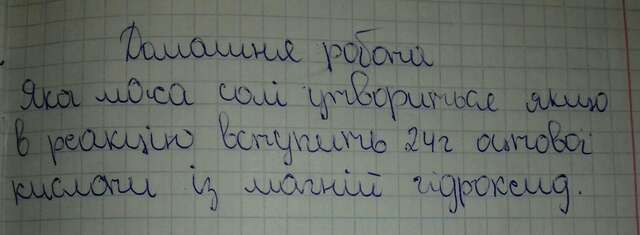 Домашня робота
Яка маса солі утвориться якщо
в реакцію вступить 24г оцтової
кислоти із магній гідроксид.